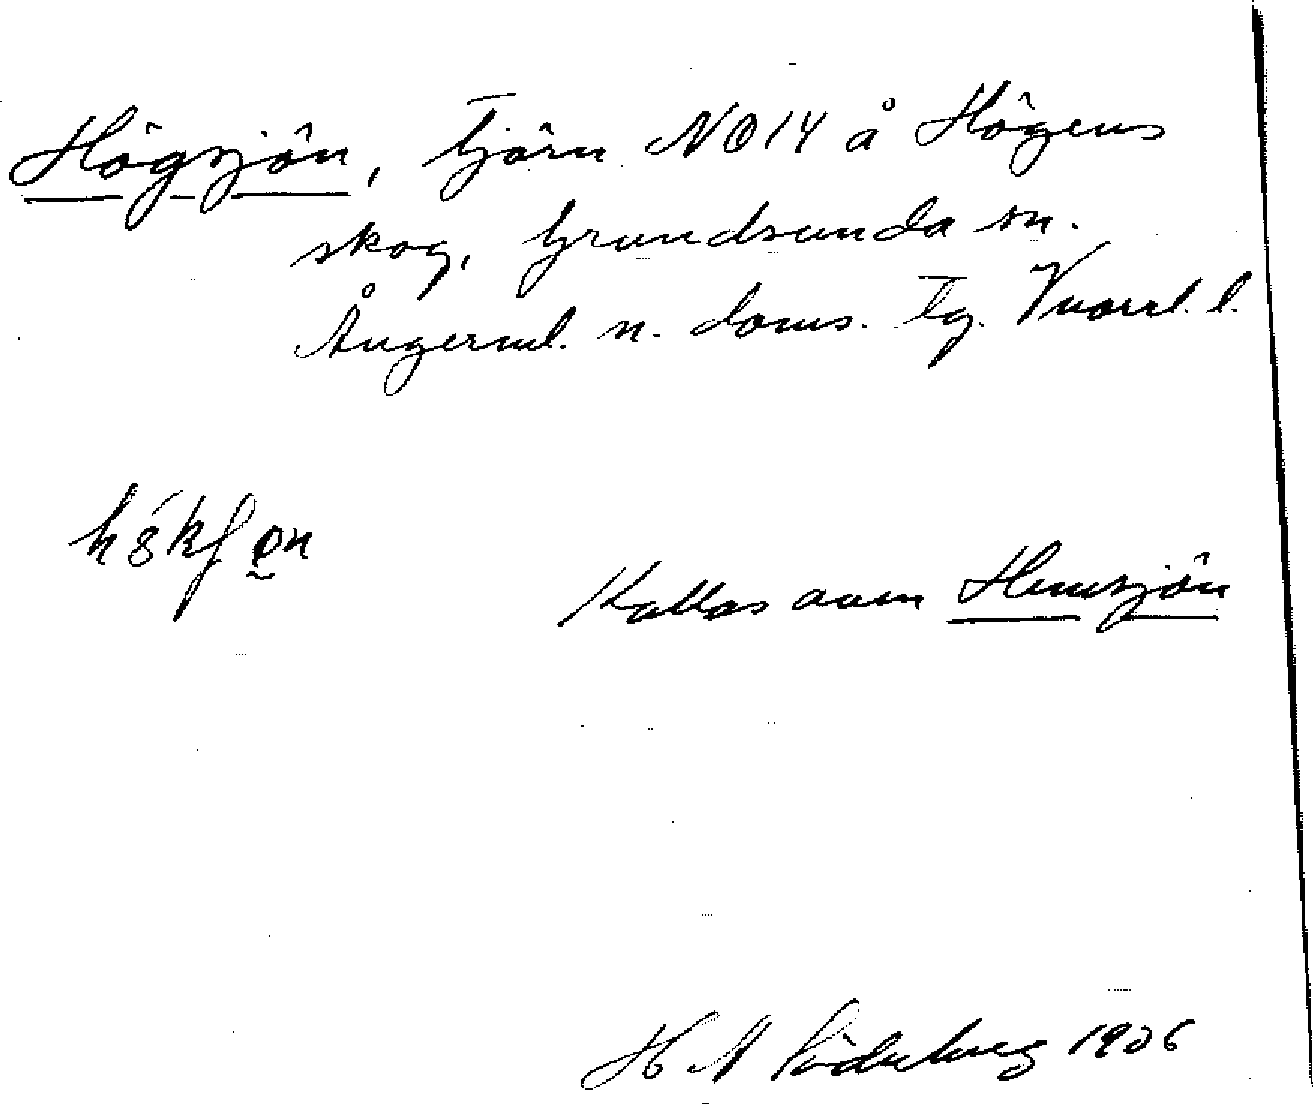 Högsjön, Tjärn NO14 å Högens
skog, Grundsunda sn.
Ångerml. n. doms. Tg. l.
Kallas även Hemsjön
H A Söderberg 1906